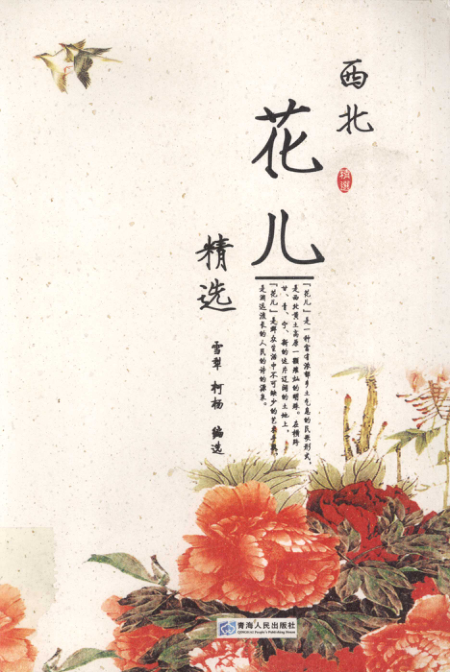 西北
花儿
精選
精选
雪犁 柯杨 编选
「花儿」是一种富有浓郁乡土气息的民歌形式,
是西北黄土高原一颗璀灿的明珠。在横跨
甘、青、宁、新的这片辽阔的土地上,
「花儿」是群众生活中不可缺少的艺术
是源远流长的人民的诗的源泉。
青海人民出版社
QINGHAI People's Publishing House